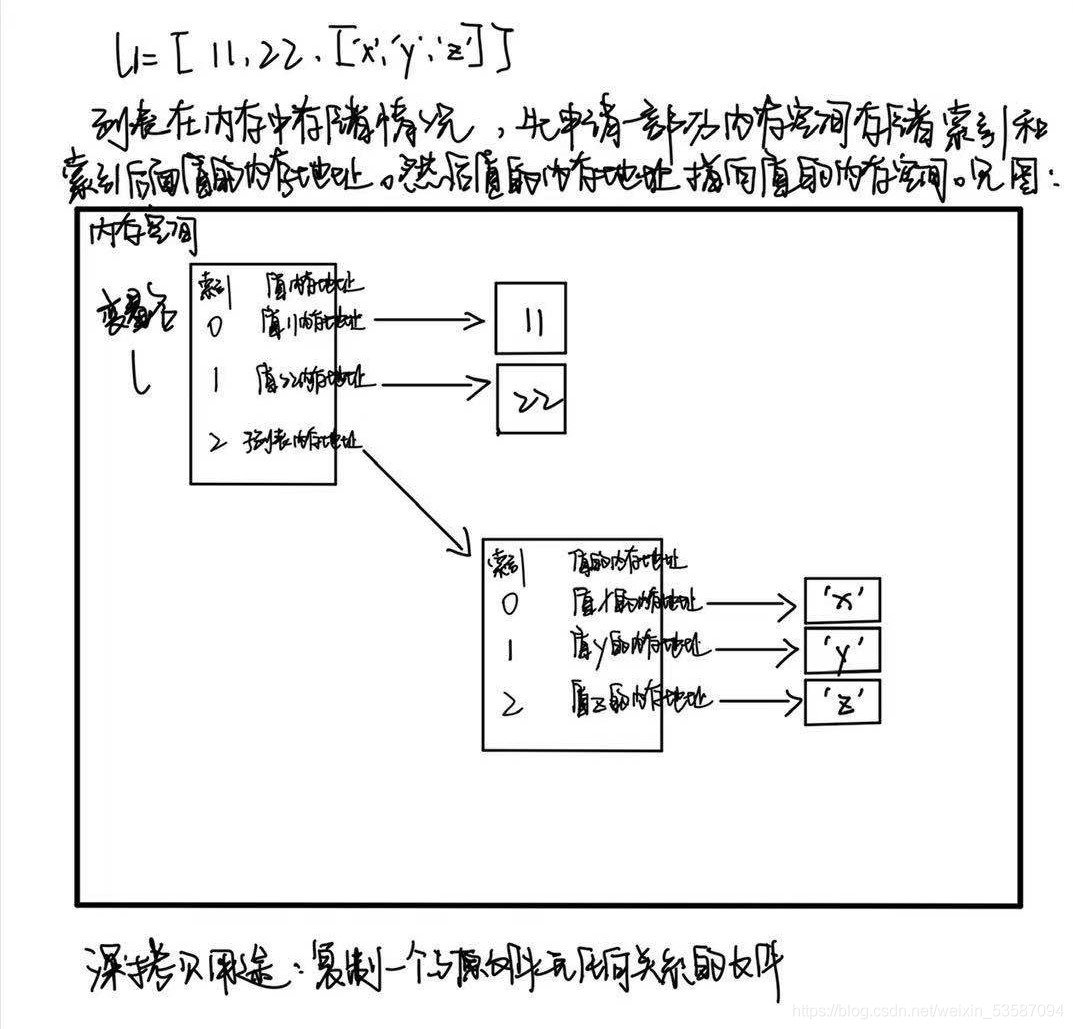 l1=[11,22,['x','y','z']]
列表在内存中存储情况，先申请一部分内存空间存储索引和
索引后面值的内存地址。然后值的内存地址指向值的内存空间。见图：
内存空间
变量名
l
索引 值内存地址
0 值11内存地址
11
1 值22内存地址
22
2 子列表内存地址
索引 值的内存地址
0 值x的内存地址
'x'
1 值y的内存地址
'y'
2 值z的内存地址
'z'
深拷贝用途：复制一个与原文件无任何关系的文件
https://blog.csdn.net/weixin_53587094